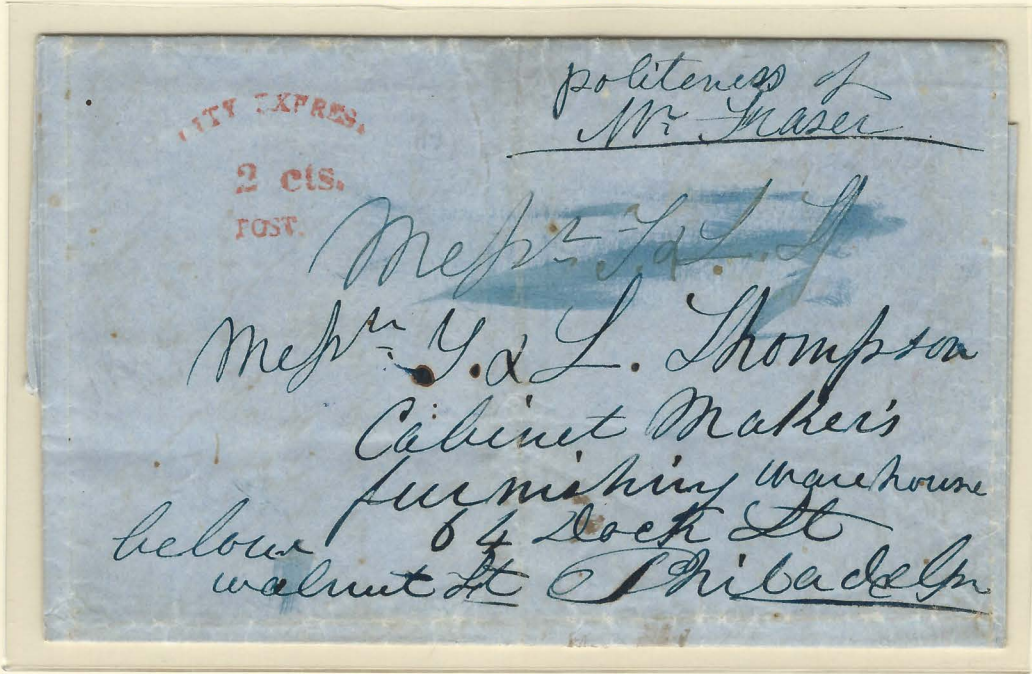 CITY EXPRESS
2 cts.
POST.
politeness of
Mr Fraser
Messrs T & L. T
Messrs T. & L. Thompson
Cabinet Maker's
furnishing warehouse
64 Dock St
below
walnut St Philadelpa